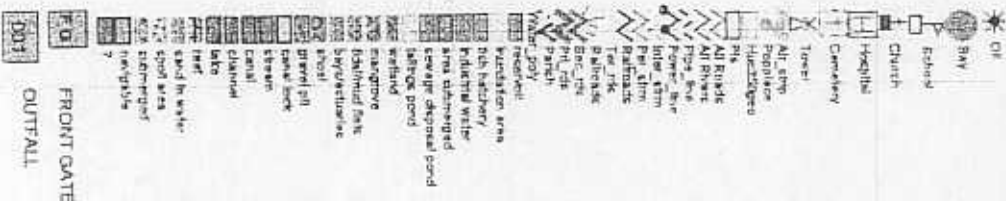 Oil
Bay
School
Church
Hospital
Cemetery
Tower
Air_strip
Popplace
Pls
All Roads
All Rivers
Pipe_line
Power_line
Inter_strm
Per_strm
Railroads
Ter_rds
Railroads
Sec_rds
Pri_rds
Parish
Water_poly
reservoir
inundation area
fish hatchery
industrial water
area submerged
sewage disposal pond
tailings pond
wetland
mangrove
tide/mud flats
bays/estuaries
shoal
gravel pit
canal lock
stream
canal
channel
lake
reef
sand in water
spoil area
submerged
navigable
?
FG FRONT GATE
001 OUTFALL